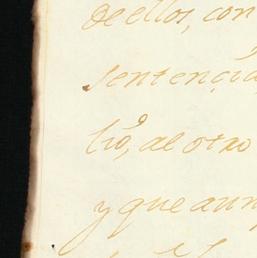 de ellos, con
sentençia
lio, al otro
y que aun